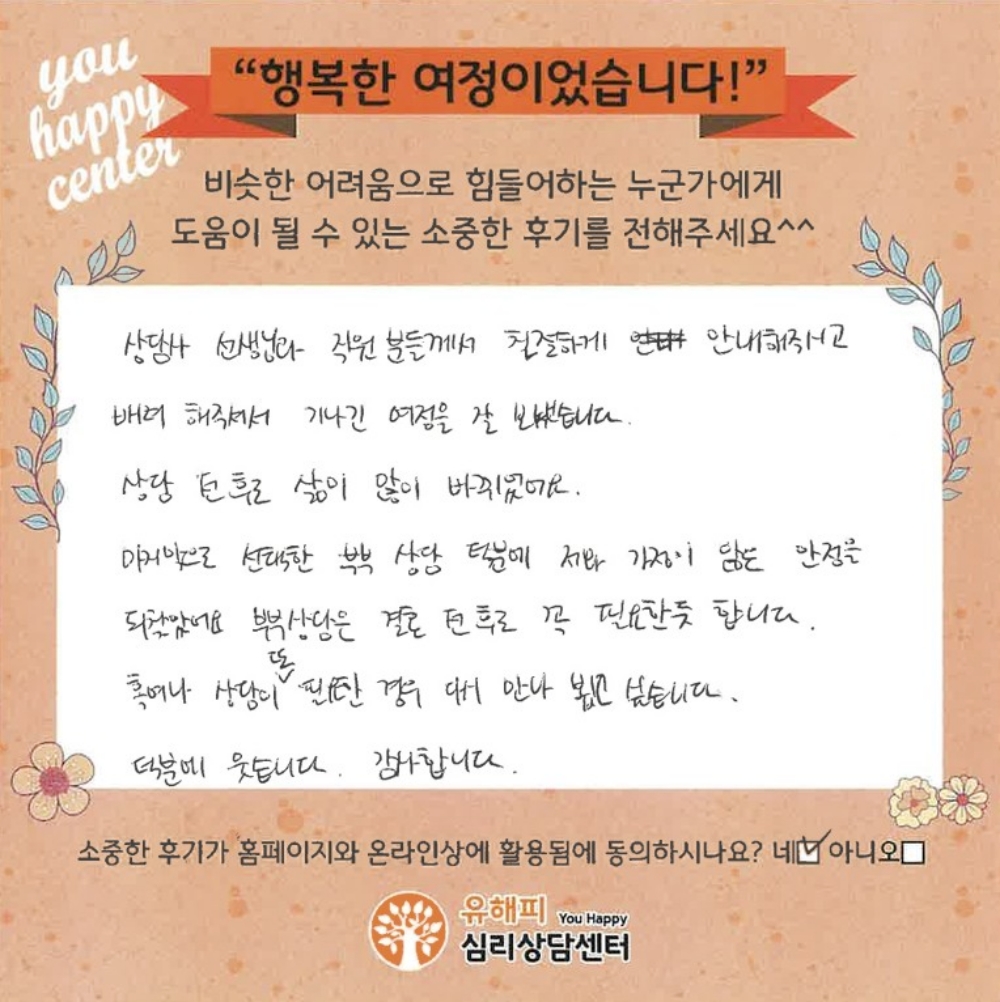 you
happy
center
“행복한 여정이었습니다!”
비슷한 어려움으로 힘들어하는 누군가에게
도움이 될 수 있는 소중한 후기를 전해주세요^^
상담사 선생님과 직원분들께서 친절하게 안내해주시고
배려 해주셔서 기나긴 여정을 잘 보냈습니다.
상담 전후로 삶이 많이 바뀌었어요.
마지막으로 선택한 부부 상담 덕분에 저와 가정이 많은 안정을
되찾았어요 부부상담은 결혼 전후로 꼭 필요한듯 합니다.
혹여나 상담이 또 필요한 경우 다시 만나 뵙고 싶습니다.
덕분에 웃습니다. 감사합니다.
소중한 후기가 홈페이지와 온라인상에 활용됨에 동의하시나요? 네 아니오
유해피 You Happy
심리상담센터